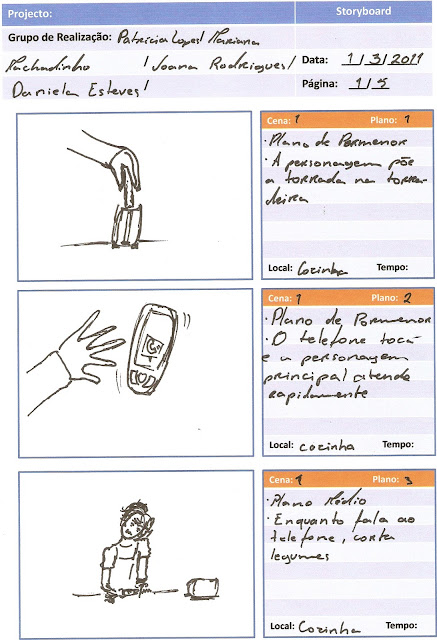 Projecto:
Storyboard
Grupo de Realização: Patrícia Lopes/ Mariana
Machadinho / Joana Rodrigues/
Daniela Esteves/
Data: 1/3/2011
Página: 1/5
Cena: 1 Plano: 1
· Plano de Pormenor
· A personagem põe
a torrada na torra-
deira
Local: Cozinha Tempo:
Cena: 1 Plano: 2
· Plano de Pormenor
· O telefone toca
e a personagem
principal atende
rapidamente
Local: cozinha Tempo:
Cena: 1 Plano: 3
· Plano Médio
· Enquanto fala ao
telefone, corta
legumes
Local: Cozinha Tempo: